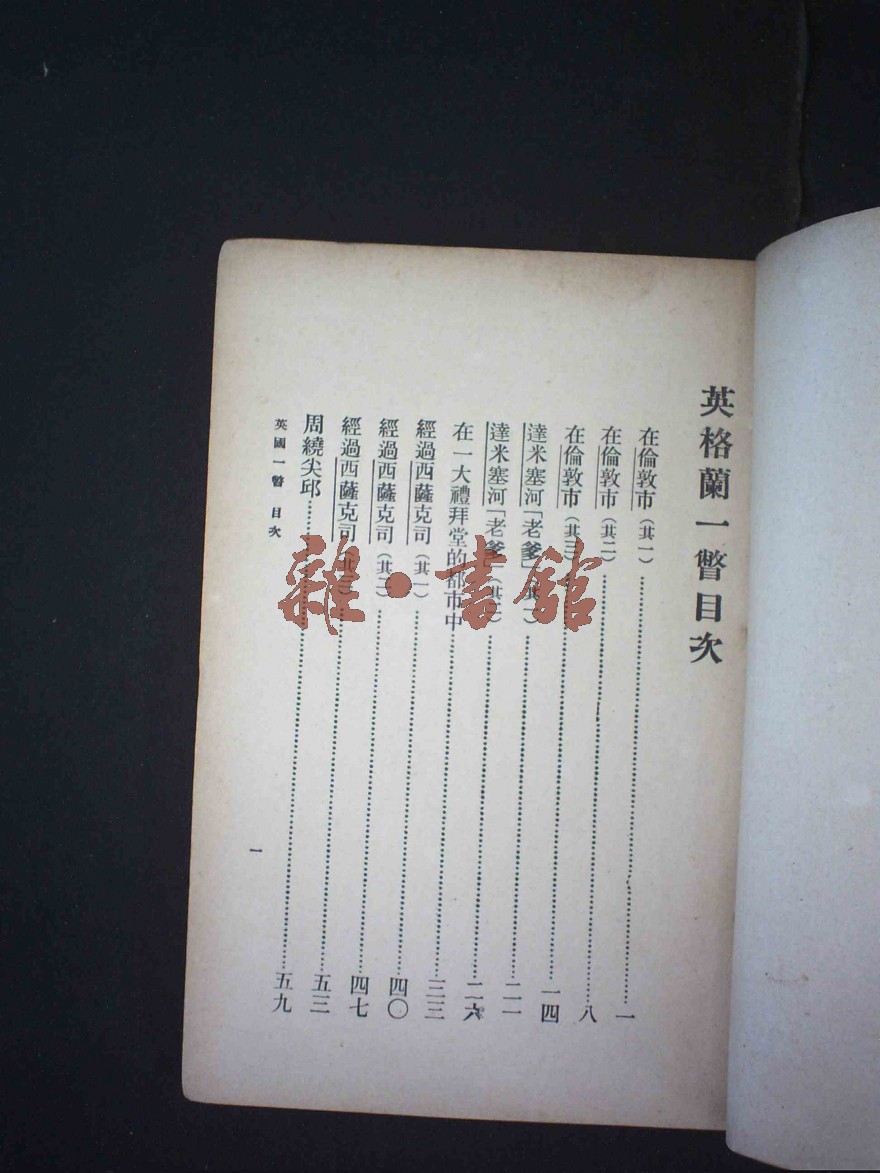 英格蘭一瞥目次
在倫敦市（其一）……一
在倫敦市（其二）……八
在倫敦市（其三）……一四
達米塞河「老爹」（其一）……二一
達米塞河「老爹」（其二）……二六
在一大禮拜堂的都市中……三三
經過西薩克司（其一）……四〇
經過西薩克司（其二）……四七
經過西薩克司（其三）……五三
周繞尖邱……五九
英國一瞥 目次
一
雜·書館